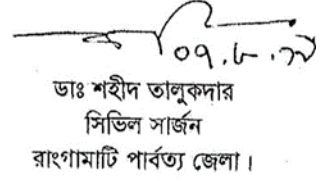 ডাঃ শহীদ তালুকদার
সিভিল সার্জন
রাংগামাটি পার্বত্য জেলা।